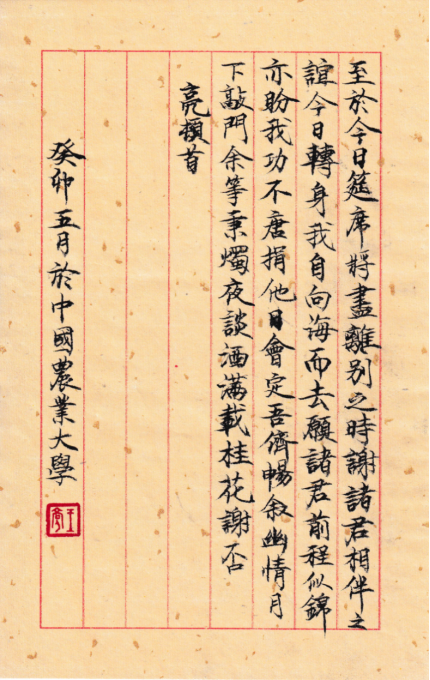 至於今日筵席將盡離別之時謝諸君相伴之
誼今日轉身我自向海而去願諸君前程似錦
亦盼我功不唐捐他日會定吾儕暢敘幽情月
下敲門余等秉燭夜談酒滿載桂花謝否
亮頓首
癸卯五月於中國農業大學
王亮